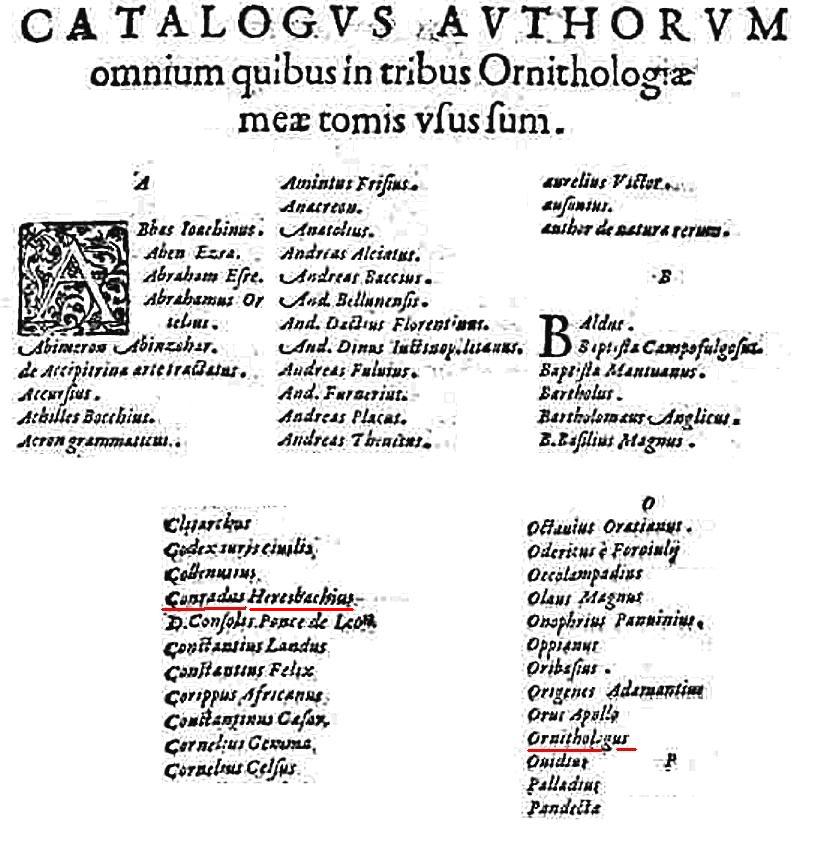 CATALOGVS AVTHORVM
omnium quibus in tribus Ornithologiæ
meæ tomis vſus ſum.
A
ABbas Ioachinus.
Aben Ezra.
Abraham Eſre.
Abrahamus Or
Abimeron Abinzohar.
de Accipitrina arte tractatus.
Accurſius.
Achilles Bocchius.
Acron grammaticus.
Amintus Friſius.
Anacreon.
Anatolius.
Andreas Alciatus.
Andreas Baccius.
And. Bellunenſis.
And. Dactius Florentinus.
And. Dinus
Andreas Fuluius.
And. Furnerius.
Andreas Placus.
Andreas
aurelius Victor.
auſonius.
author de natura rerum.
B
BAldus.
Baptiſta Campofulgoſus.
Baptiſta Mantuanus.
Bartholus.
Bartholomæus Anglicus.
B. Baſilius Magnus.
Clitarchus
Codex iuris ciuilis
Conradus Heresbachius
D. Conſolis. Ponce de Leon
Conſtantius Landus
Conſtantius Felix
Corippus Africanus
Conſtantinus Cæſar,
Cornelius Gemma,
Cornelius Celſus
O
Octauius Oratianus.
Odericus è Foroiulij
Oecolampadius
Olaus Magnus
Onophrius Panuinius.
Oppianus
Oribaſius.
Origenes Adamantius
Orus Apollo
Ornithologus
Ouidius
P
Palladius
Pandecta